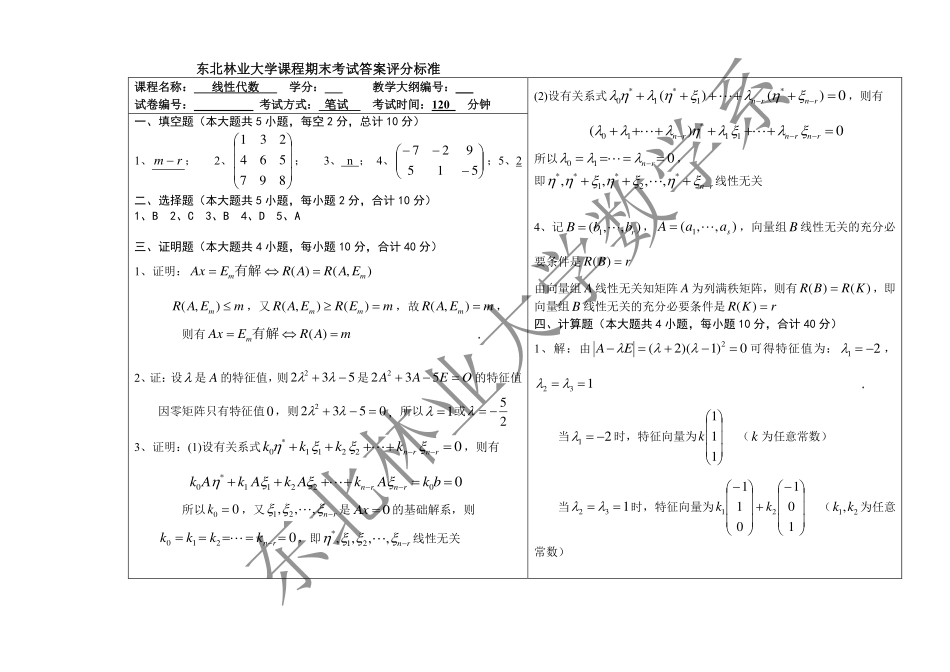 东北林业大学课程期末考试答案评分标准
课程名称： 线性代数 学分： 教学大纲编号：
试卷编号： 考试方式： 笔试 考试时间：120 分钟
一、填空题（本大题共 5 小题，每空 2 分，总计 10 分）
1、 m − r ； 2、 (1 3 2; 4 6 5; 7 9 8) ； 3、 n ； 4、 (−7 −2 9; 5 1 −5) ；5、2
二、选择题（本大题共 5 小题，每小题 2 分，合计 10 分）
1、B 2、C 3、B 4、D 5、A
三、证明题（本大题共 4 小题，每小题 10 分，合计 40 分）
1、证明： Ax = E_m有解 ⇔ R(A) = R(A, E_m)
R(A, E_m) ≤ m ，又 R(A, E_m) ≥ R(E_m) = m ，故 R(A, E_m) = m ，
则有 Ax = E_m有解 ⇔ R(A) = m .
2、证：设 λ 是 A 的特征值，则 2λ² + 3λ − 5 是 2A² + 3A − 5E = O 的特征值
因零矩阵只有特征值 0 ，则 2λ² + 3λ − 5 = 0 ，所以 λ = 1或λ = −5/2
3、证明：(1)设有关系式 k₀η* + k₁ξ₁ + k₂ξ₂ + ⋯ + k_{n−r}ξ_{n−r} = 0 ，则有
k₀Aη* + k₁Aξ₁ + k₂Aξ₂ + ⋯ + k_{n−r}Aξ_{n−r} = k₀b = 0
所以 k₀ = 0 ，又 ξ₁, ξ₂, ⋯, ξ_{n−r} 是 Ax = 0 的基础解系，则
k₀ = k₁ = k₂ = ⋯ = k_{n−r} = 0 ，即 η*, ξ₁, ξ₂, ⋯, ξ_{n−r} 线性无关
(2)设有关系式 λ₀η* + λ₁(η* + ξ₁) + ⋯ + λ_{n−r}(η* + ξ_{n−r}) = 0 ，则有
(λ₀ + λ₁ + ⋯ + λ_{n−r})η* + λ₁ξ₁ + ⋯ + λ_{n−r}ξ_{n−r} = 0
所以 λ₀ = λ₁ = ⋯ = λ_{n−r} = 0 ，
即 η*, η* + ξ₁, η* + ξ₂, ⋯, η* + ξ_{n−r} 线性无关
4、记 B = (b₁, ⋯, b_r) ， A = (a₁, ⋯, a_s) ，向量组 B 线性无关的充分必
要条件是 R(B) = r
由向量组 A 线性无关知矩阵 A 为列满秩矩阵，则有 R(B) = R(K) ，即
向量组 B 线性无关的充分必要条件是 R(K) = r
四、计算题（本大题共 4 小题，每小题 10 分，合计 40 分）
1、解：由 |A − λE| = (λ + 2)(λ − 1)² = 0 可得特征值为： λ₁ = −2 ，
λ₂ = λ₃ = 1 .
当 λ₁ = −2 时，特征向量为 k (1; 1; 1) （ k 为任意常数）
当 λ₂ = λ₃ = 1 时，特征向量为 k₁ (−1; 1; 0) + k₂ (−1; 0; 1) （ k₁, k₂ 为任意
常数）
东北林业大学数学系